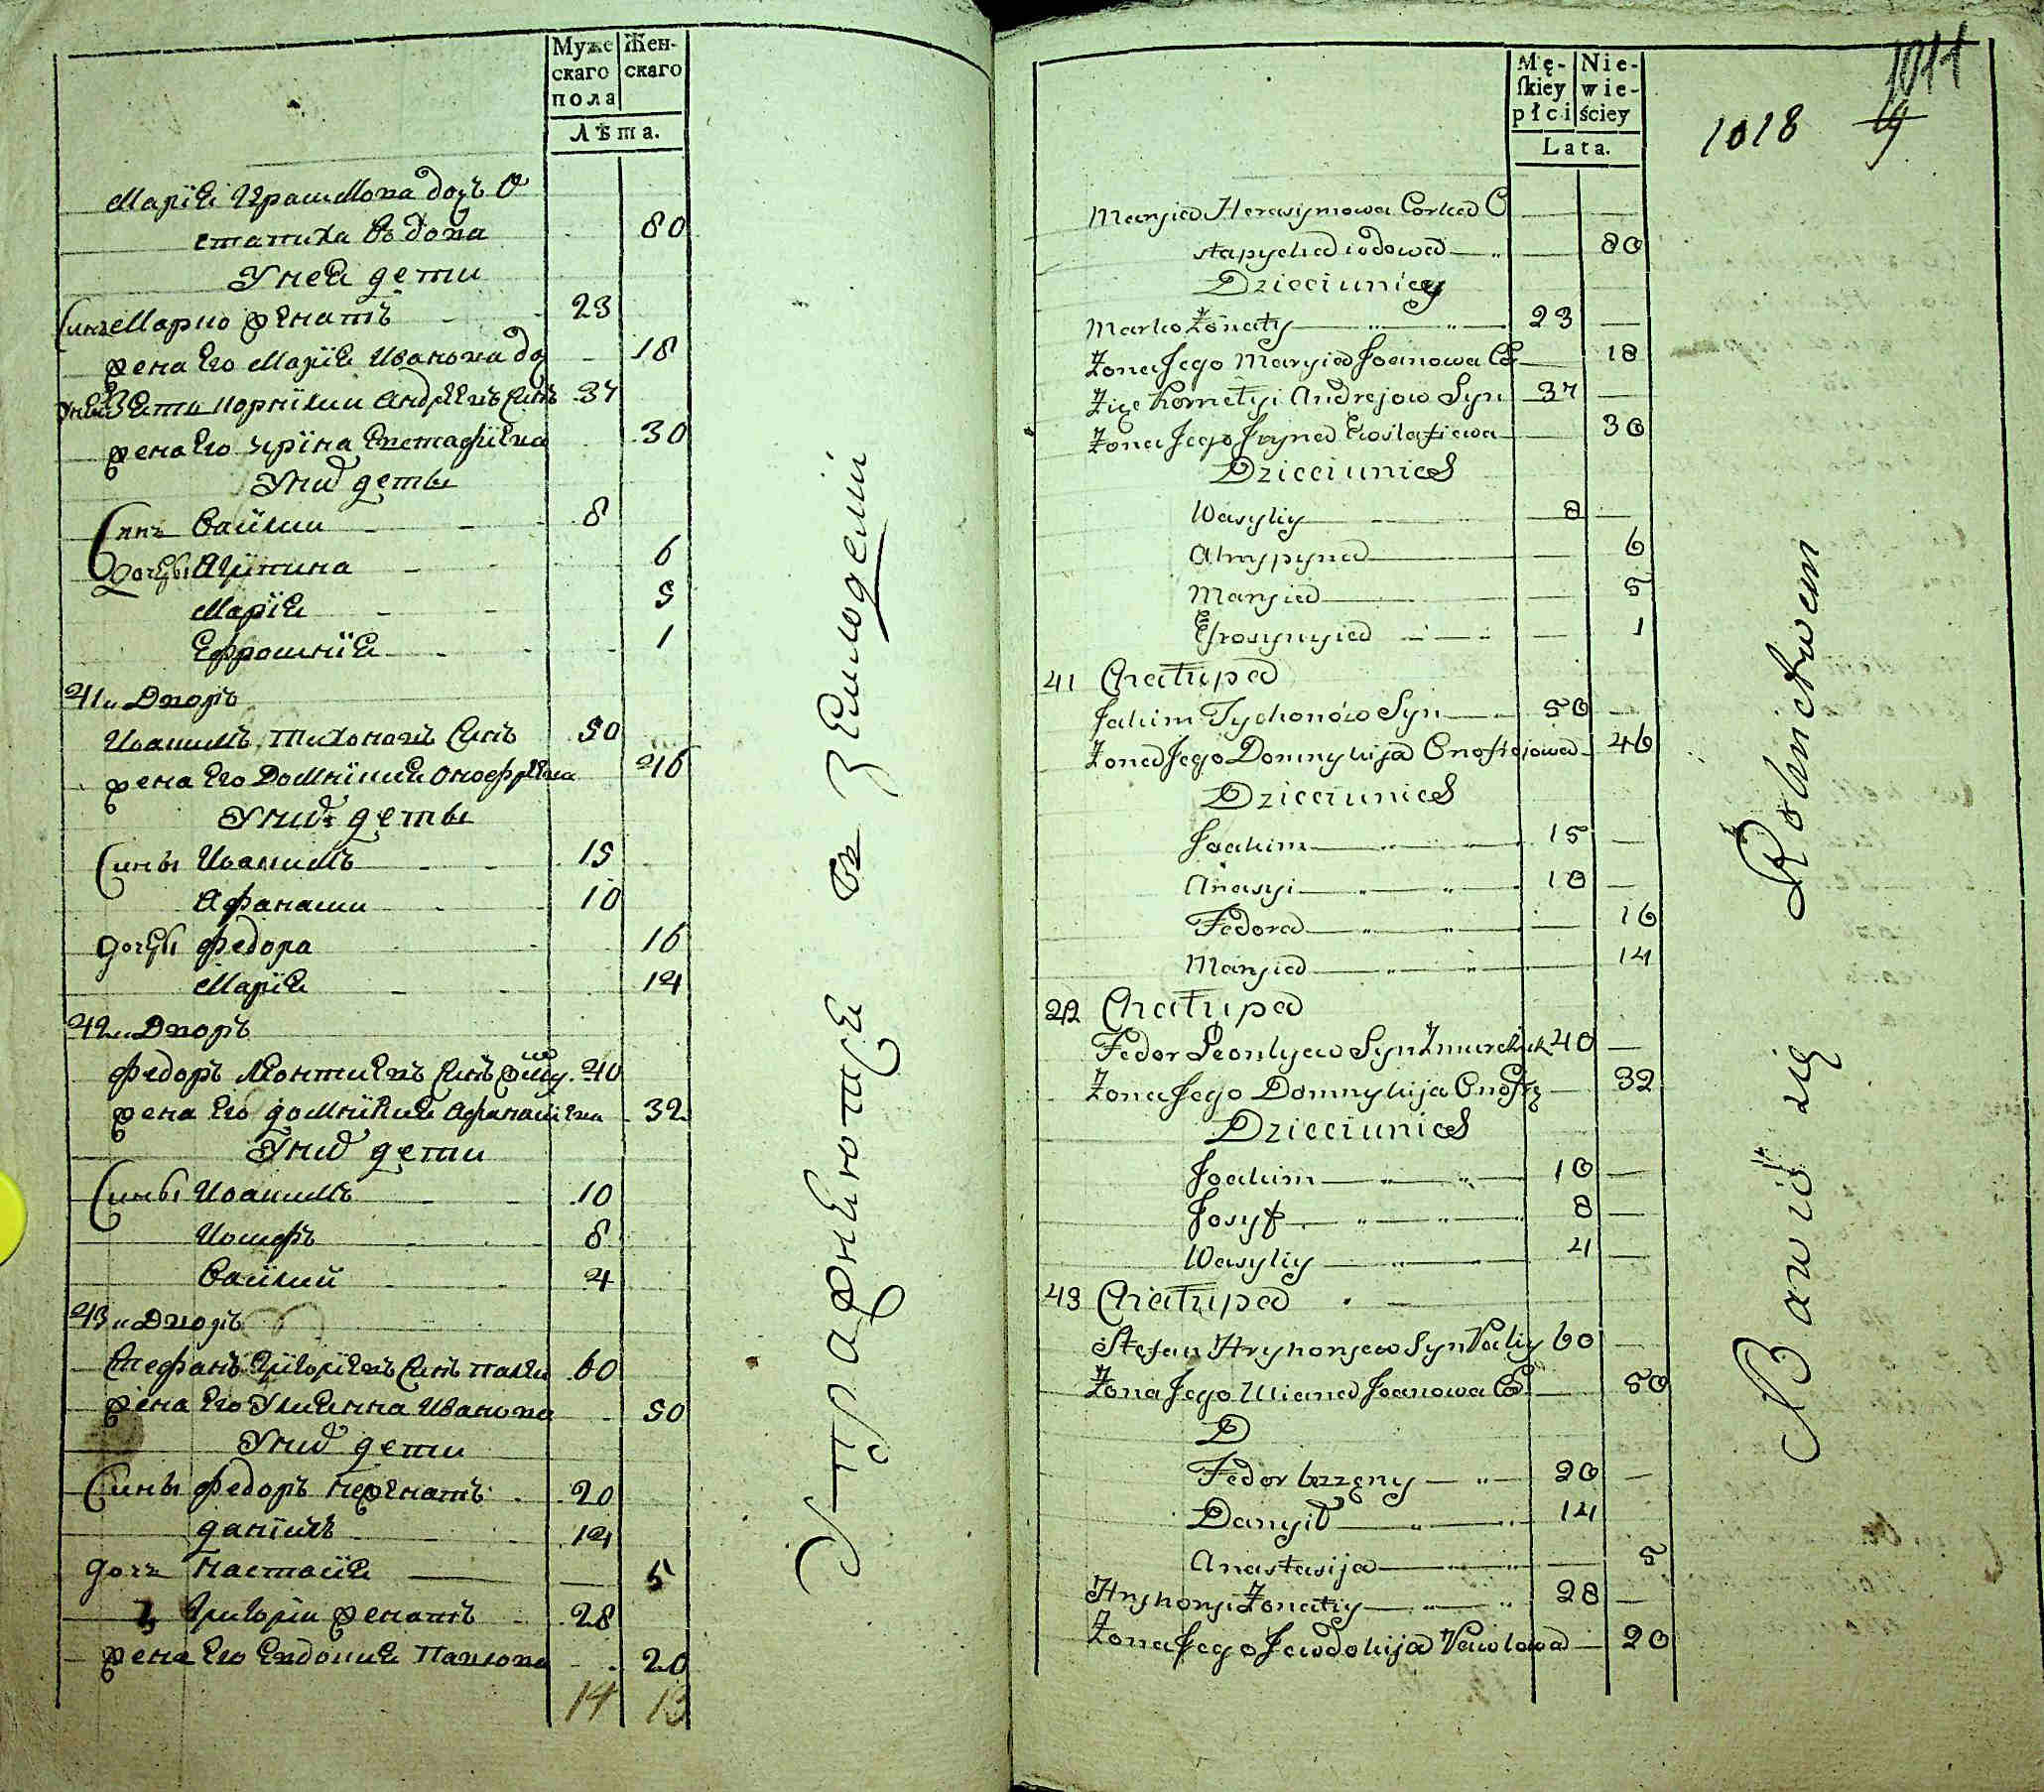 Муже
скаго
пола
Жен-
скаго
Лѣта.
Марїѣ Ирасимова доч O
стапиха вдова 80
У неи дети
Синъ Марко женатъ 23
жена его Марїѣ Иванова до 18
Корнїлии Андреевъ синъ 37
жена его Ирїна Евстафїева 30
У них дети
Синъ Васїлии 8
дочери Агрїпина 6
Марїѣ 5
Ефросинїѣ 1
41 и Дворъ
Иоакимъ Тихоновъ синъ 50
жена его Домнїкиѣ Онофрѣева 46
У них дети
Сины Иоакимъ 15
Афанасии 10
дочери Федора 16
Марїѣ 14
42 и Дворъ
Федоръ Леонтиевъ синъ 40
жена его Домнїкиѣ Афанасиева 32
У них дети
Сины Иоакимъ 10
Иосифъ 8
Васїлий 4
43 и Дворъ
Стефанъ Григорїевъ синъ Палїи 60
жена его Улиѣнна Иванова 50
У них дети
Сины Федоръ неженатъ 20
Данїилъ 14
дочь Настасїѣ 5
Григорїи женатъ 28
жена его Евдокиѣ Павлова 20
14 13
Упражнѣютсѣ въ Земледелїи
Mę-
skiey
płci
Nie-
wie-
ściey
Lata.
1018
1011
Maryia Herasymowa Corka O
stapycha wdowa 80
Dzieci u niey
Marko Żonaty 23
Żona Jego Maryia Joanowa Co 18
Kornełyi Andrejow Syn 37
Żona Jego Jryna Ewstafiewa 30
Dzieci u nich
Wasyliy 8
Ahrypyna 6
Maryia 5
Efrosynyia 1
41 Chałupa
Jakim Tychonów Syn 50
Żona Jego Domnykija Onofrejowa 46
Dzieci u nich
Joakim 15
Afnasyi 10
Fedora 16
Maryia 14
42 Chałupa
Fedor Leontyew Syn Żmurchuk 40
Żona Jego Domnykija Onofrę 32
Dzieci u nich
Joakim 10
Josyf 8
Wasyliy 4
43 Chałupa
Stefan Hryhorjew Syn Paliy 60
Żona Jego Uliana Joanowa Co 50
D
Fedor bezzęny 20
Danyił 14
Anastasija 5
Hryhoryi Żonatiy 28
Żona Jego Jewdokija Pawlowa 20
Bawią się Rolnictwem